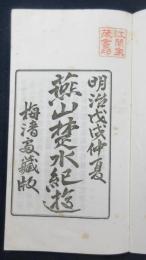 明治戊戌仲夏
燕山楚水紀遊
梅清處藏版